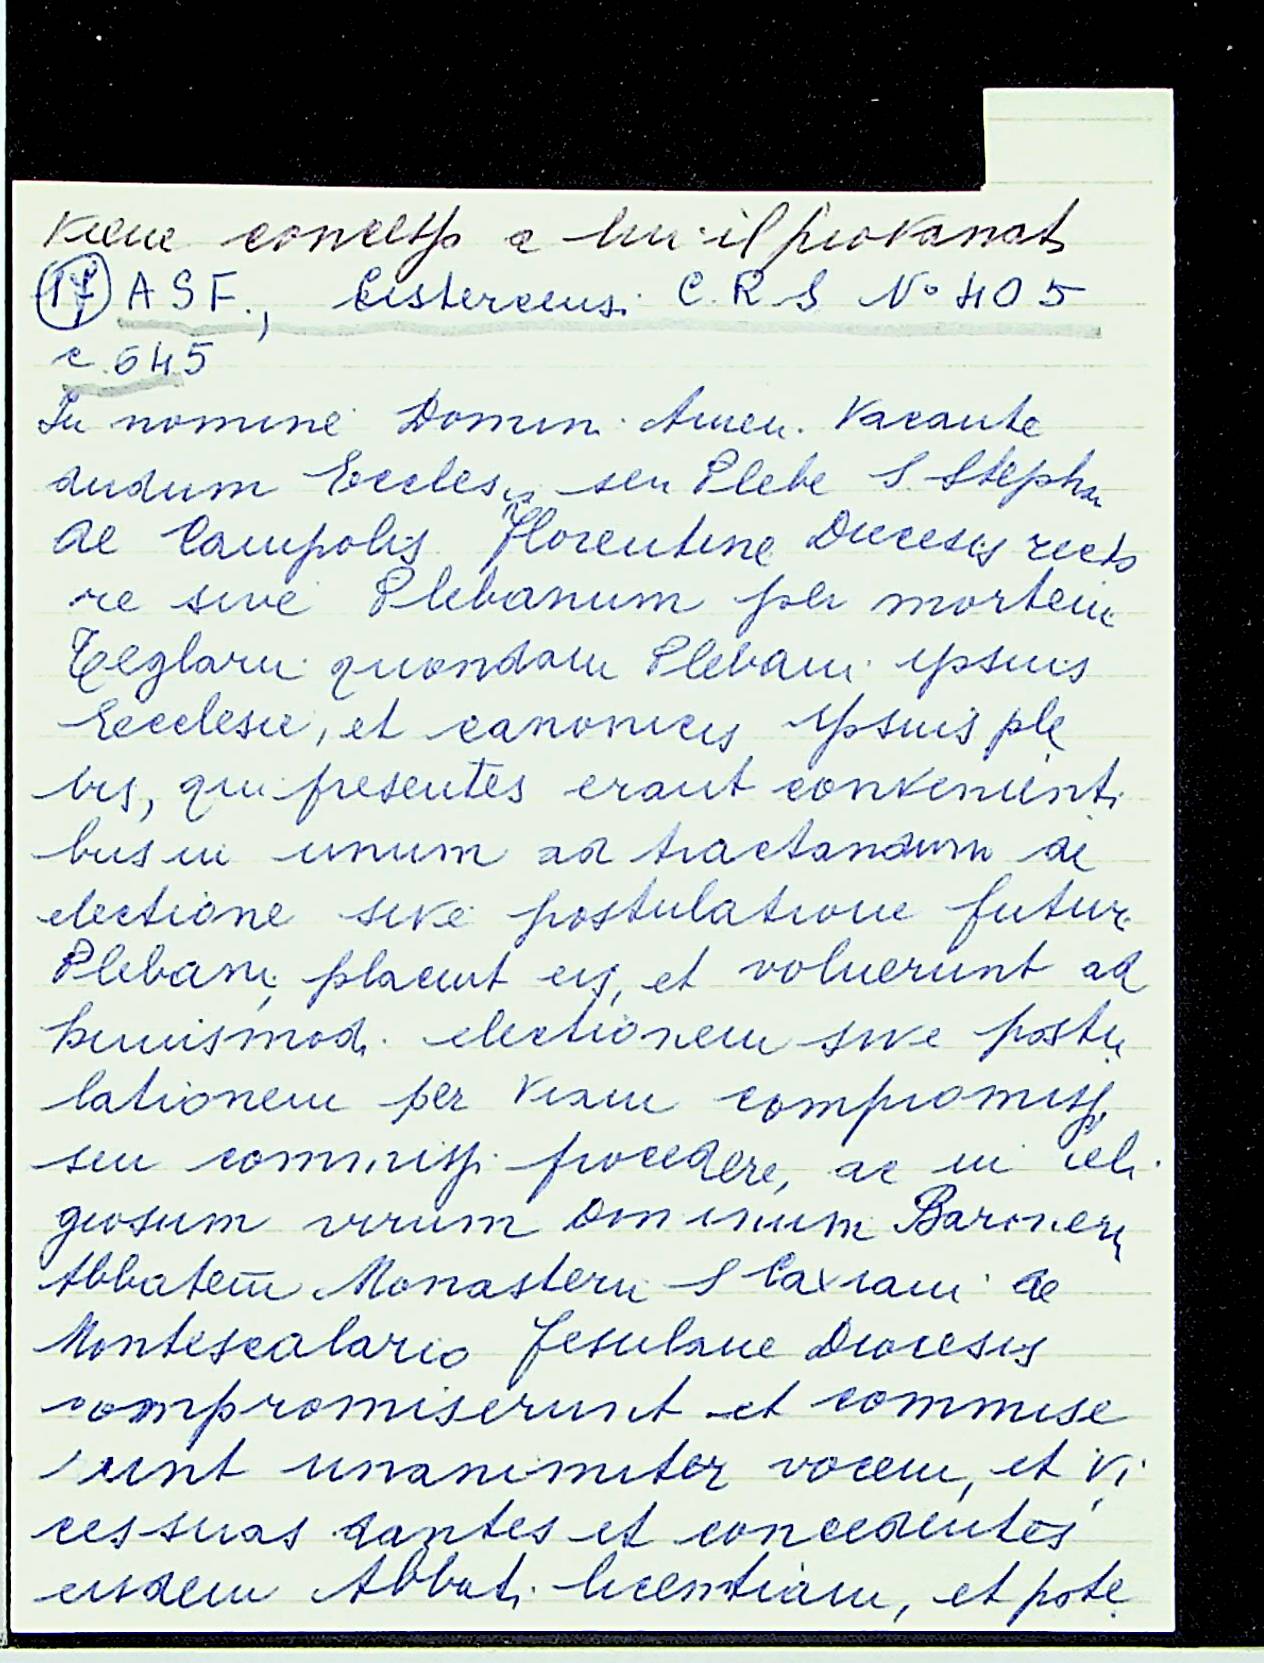 viene concesso a lui il piovanato
(17) A S F., Cistercensi C. R. S No 405
c. 645
In nomine Domini Amen. Vacante
dudum Ecclesia seu Plebe S Stephani
de Campolis Florentine Diecesis recto
re sive Plebanum per mortem
Teglarii quondam Plebani ipsius
Ecclesie, et canonicis ipsius ple
bis, qui presentes erant convenienti
bus in unum ad tractandum de
electione sive postulatione futuri
Plebani, placuit eis, et voluerunt ad
huiusmodi electionem sive postu
lationem per viam compromissi
seu commissi procedere, ac in reli
giosum virum Dominum Baronem
Abbatem Monasterii S Caxiani de
Montescalario Fesulane Diocesis
compromiserunt et commise
runt unanimiter vocem, et vi
ces suas dantes et concedentes
eisdem Abbati licentiam, et pote